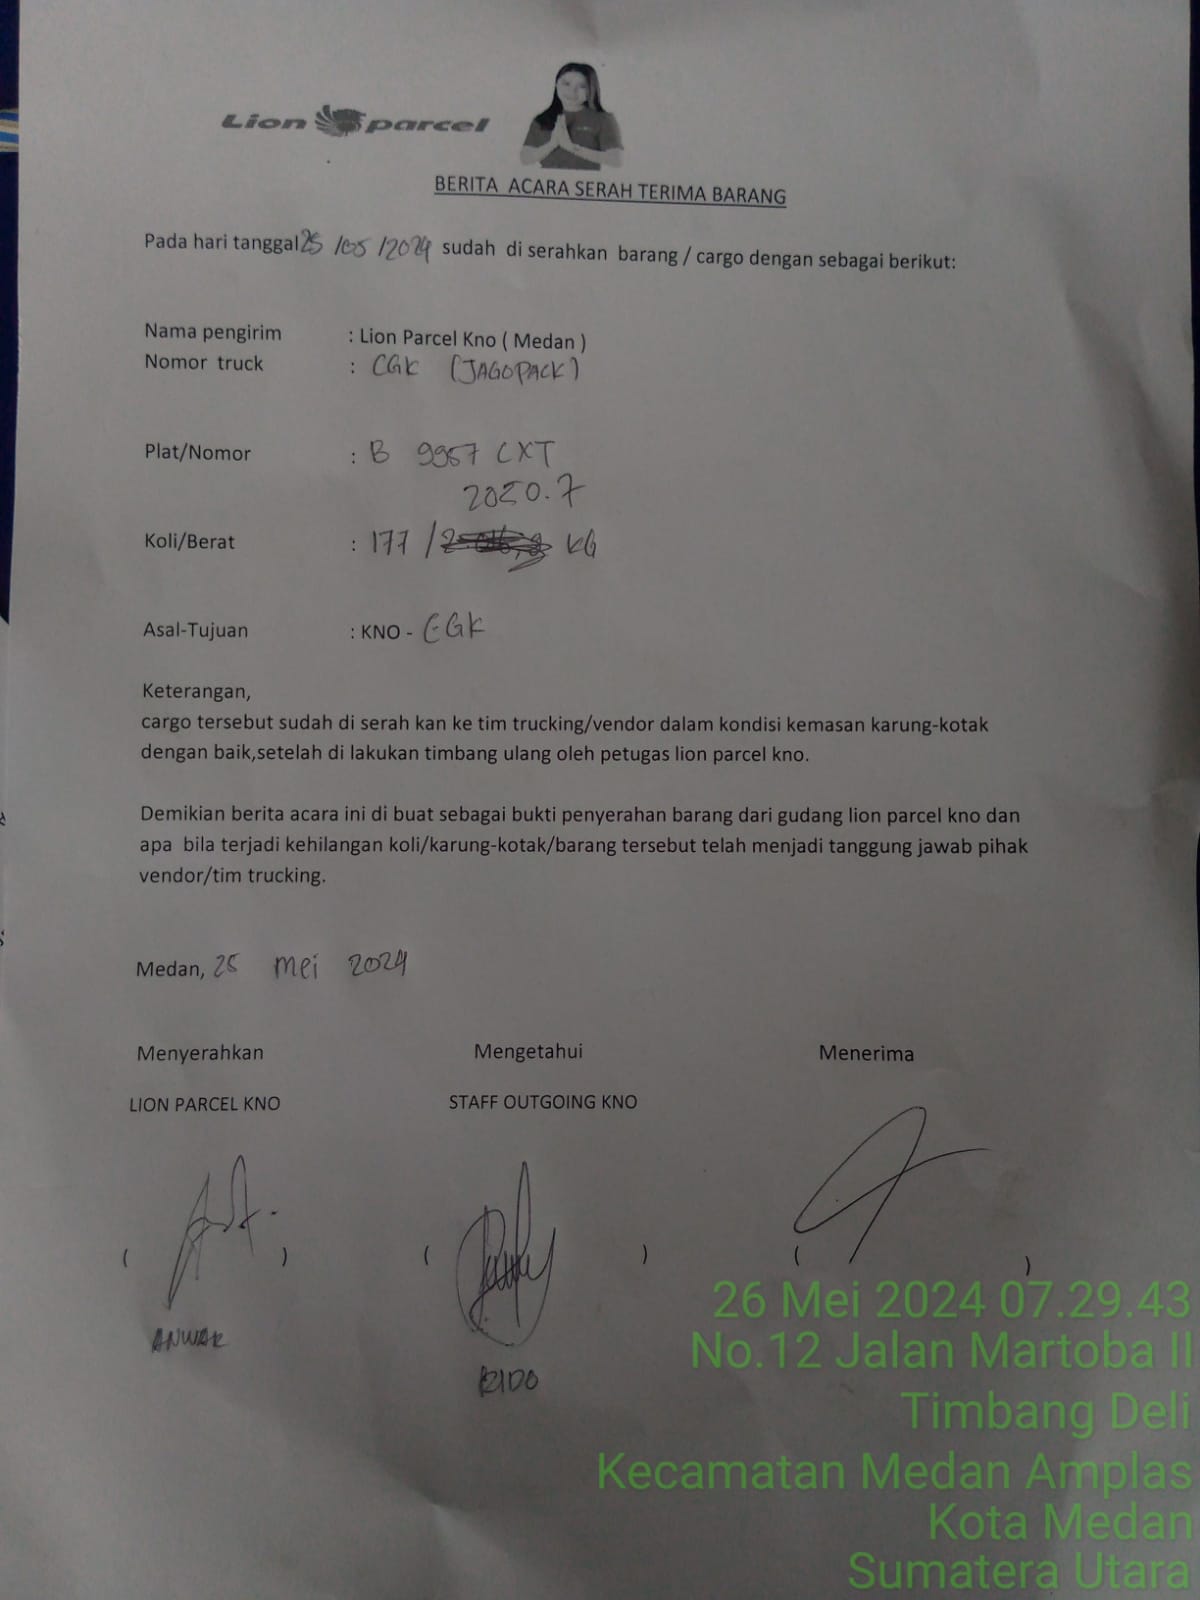 Lion parcel
BERITA ACARA SERAH TERIMA BARANG
Pada hari tanggal 25 /05 /2024 sudah di serahkan barang / cargo dengan sebagai berikut:
Nama pengirim : Lion Parcel Kno ( Medan )
Nomor truck : CGK (JAGOPACK)
Plat/Nomor : B 9957 CXT
2050.7
Koli/Berat : 177 / KG
Asal-Tujuan : KNO - CGK
Keterangan,
cargo tersebut sudah di serah kan ke tim trucking/vendor dalam kondisi kemasan karung-kotak
dengan baik,setelah di lakukan timbang ulang oleh petugas lion parcel kno.
Demikian berita acara ini di buat sebagai bukti penyerahan barang dari gudang lion parcel kno dan
apa bila terjadi kehilangan koli/karung-kotak/barang tersebut telah menjadi tanggung jawab pihak
vendor/tim trucking.
Medan, 25 mei 2024
Menyerahkan Mengetahui Menerima
LION PARCEL KNO STAFF OUTGOING KNO
( ) ( ) ( )
ANWAR
RIDO
26 Mei 2024 07.29.43
No.12 Jalan Martoba II
Timbang Deli
Kecamatan Medan Amplas
Kota Medan
Sumatera Utara